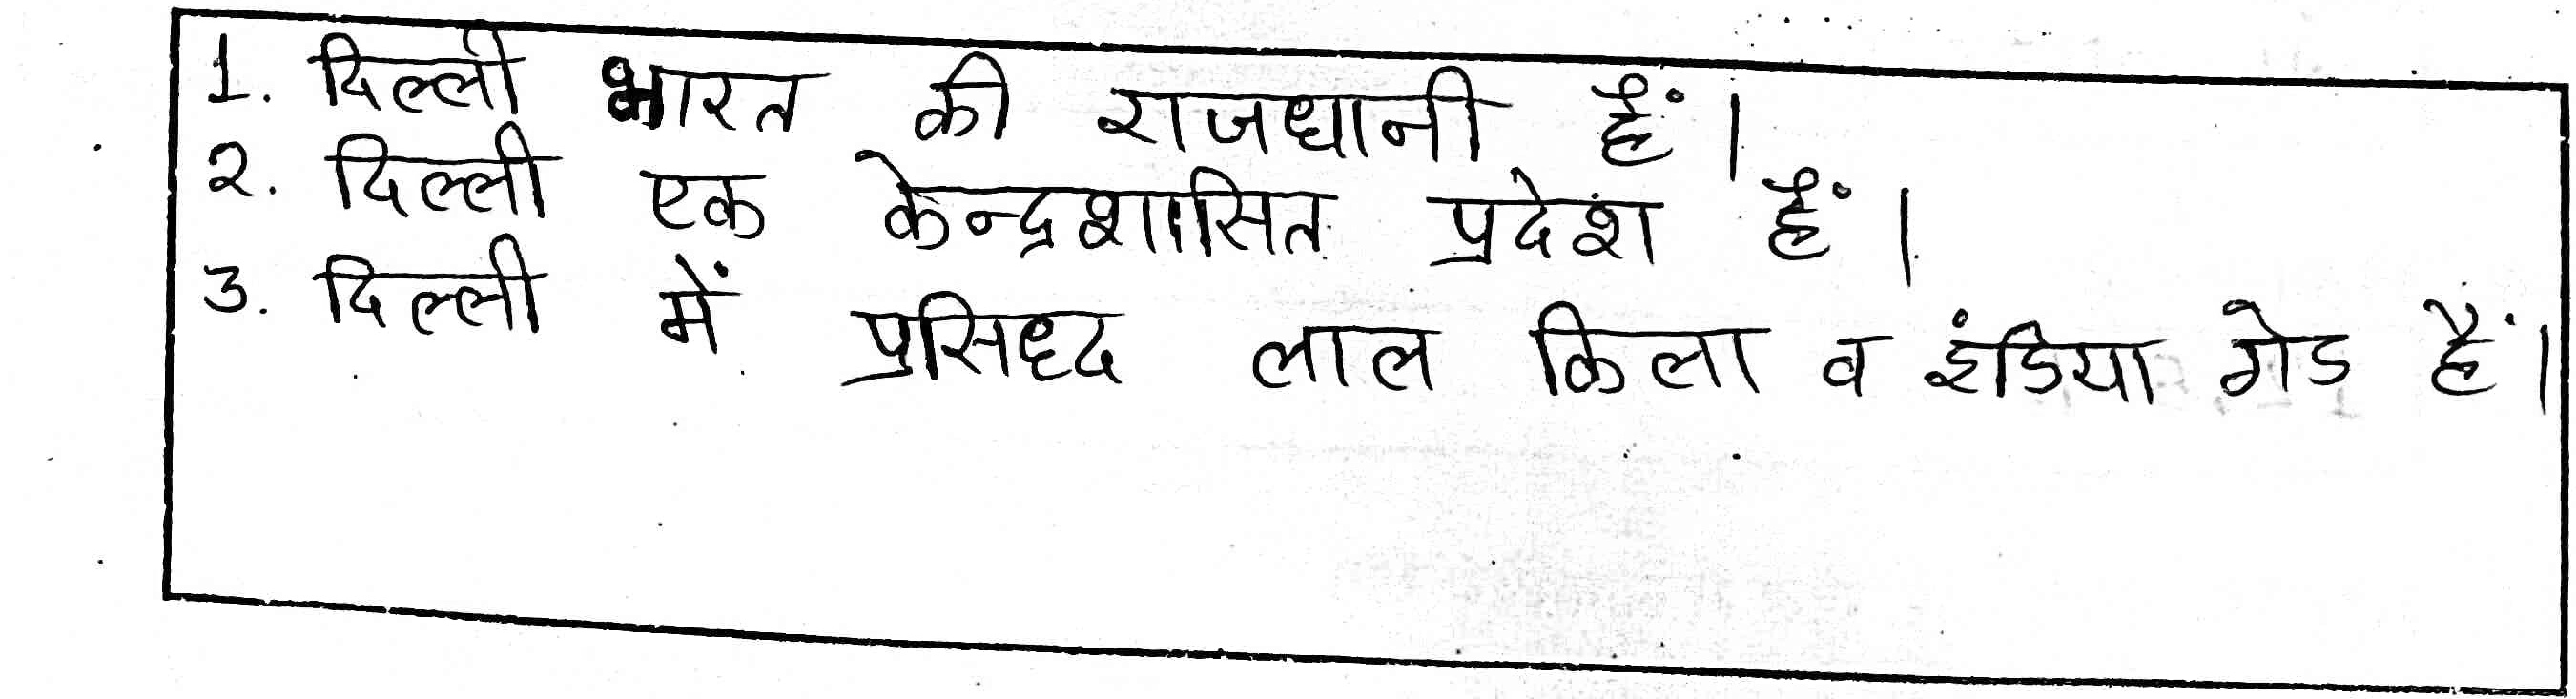 1. दिल्ली भारत की राजधानी हैं।
२. दिल्ली एक केन्द्रशासित प्रदेश हैं।
3. दिल्ली में प्रसिध्द लाल किला व इंडिया गेड हैं।